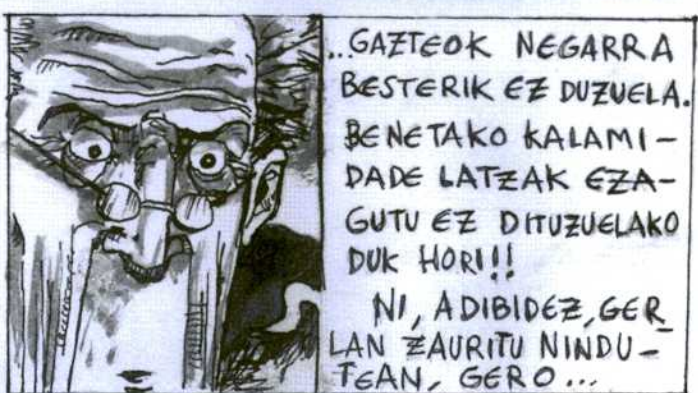 ...GAZTEOK NEGARRA
BESTERIK EZ DUZUELA.
BENETAKO KALAMI-
DADE LATZAK EZA-
GUTU EZ DITUZUELAKO
DUK HORI!!
NI, ADIBIDEZ, GER_
LAN ZAURITU NINDU-
TEAN, GERO...